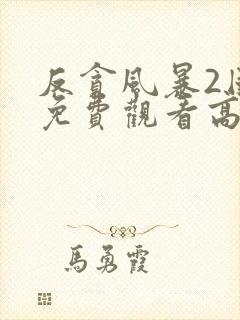 反貪風暴2
免費觀看高
馬勇霞